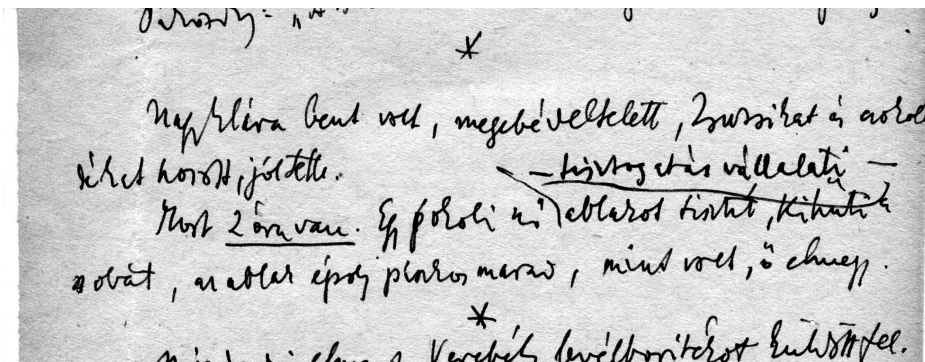 *
Nagy Klára bent volt, megebédeltetett, Zsuzsikat és csokol
hozott, jól tette.
— tisztogatás vállalati —
Most 2 óra van. Egy pokoli nő ablakot tisztít, kihűti a
szobát, az ablak épp oly piszkos marad, mint volt, ő elmegy.
*
levélborítékot küldött fel.